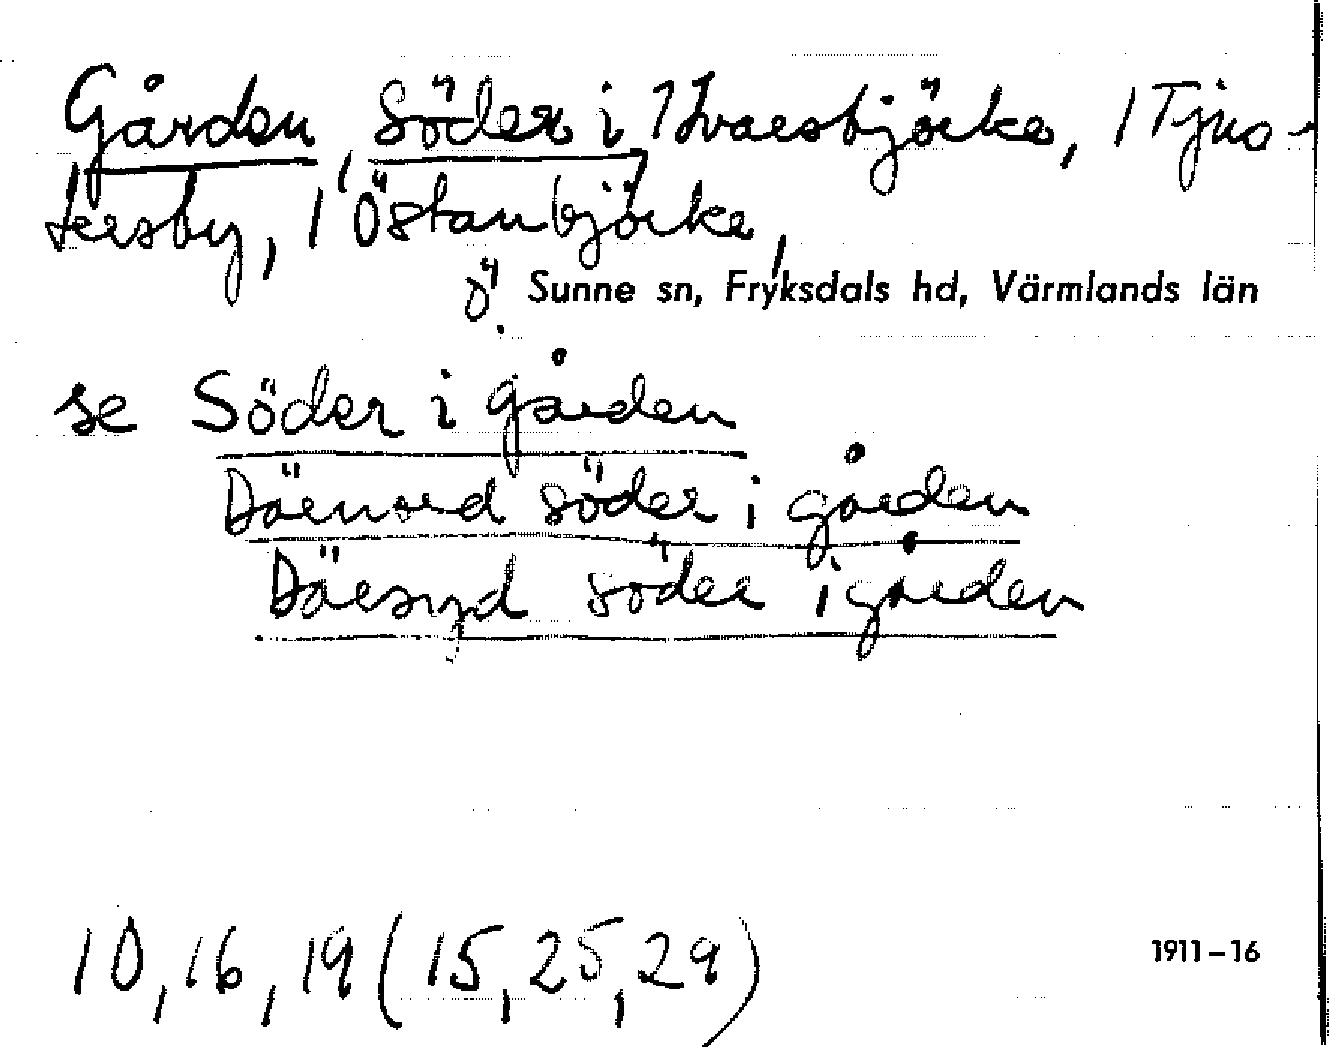 Gården, Söder i, 1 Ivarsbjörke, 1 Tjus-
tersby, 1 Östanbjörke,
Ö. Sunne sn, Fryksdals hd, Värmlands län
se Söder i gården
Därnord söder i gården
Därsyd söder i gården
10, 16, 19 (15, 25, 29)
1911–16